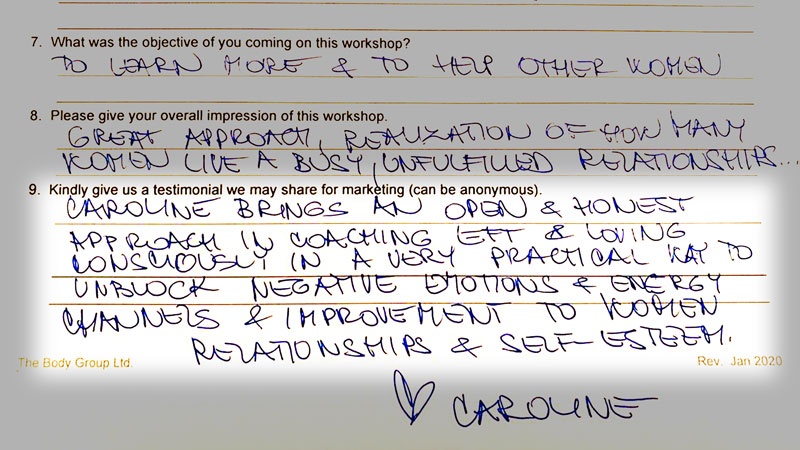 7. What was the objective of you coming on this workshop?
TO LEARN MORE & TO HELP OTHER WOMEN
8. Please give your overall impression of this workshop.
GREAT APPROACH, REALIZATION OF HOW MANY
WOMEN LIVE A BUSY, UNFULFILLED RELATIONSHIPS...
9. Kindly give us a testimonial we may share for marketing (can be anonymous).
CAROLINE BRINGS AN OPEN & HONEST
APPROACH IN COACHING EFT & LOVING
CONSCIOUSLY IN A VERY PRACTICAL WAY TO
UNBLOCK NEGATIVE EMOTIONS & ENERGY
CHANNELS & IMPROVEMENT TO WOMEN
RELATIONSHIPS & SELF-ESTEEM.
The Body Group Ltd. Rev. Jan 2020
CAROLINE